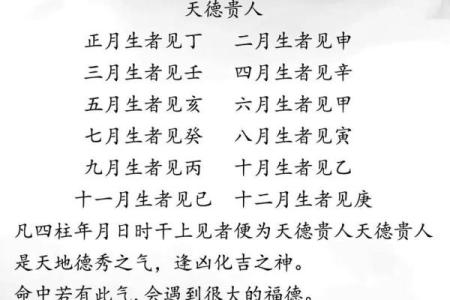 天德贵人
正月生者见丁 二月生者见申
三月生者见壬 四月生者见辛
五月生者见亥 六月生者见甲
七月生者见癸 八月生者见寅
九月生者见丙 十月生者见乙
十一月生者见已 十二月生者见庚
凡四柱年月日时干上见者便为天德贵人天德贵人
是天地德秀之气，逢凶化吉之神。
命中若有此气,会遇到很大的福德。